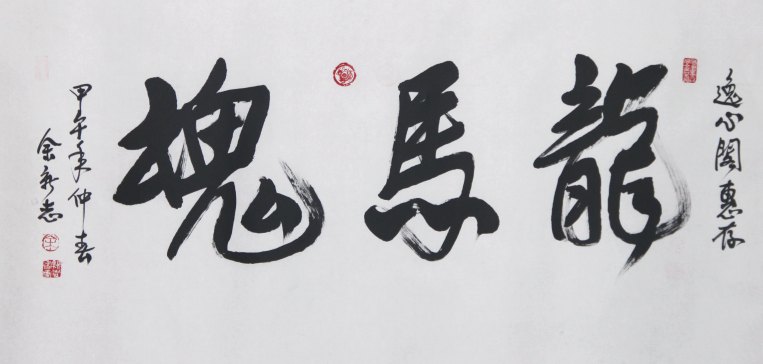 逸心閣惠存
龍馬魂
甲午年仲春
余新志